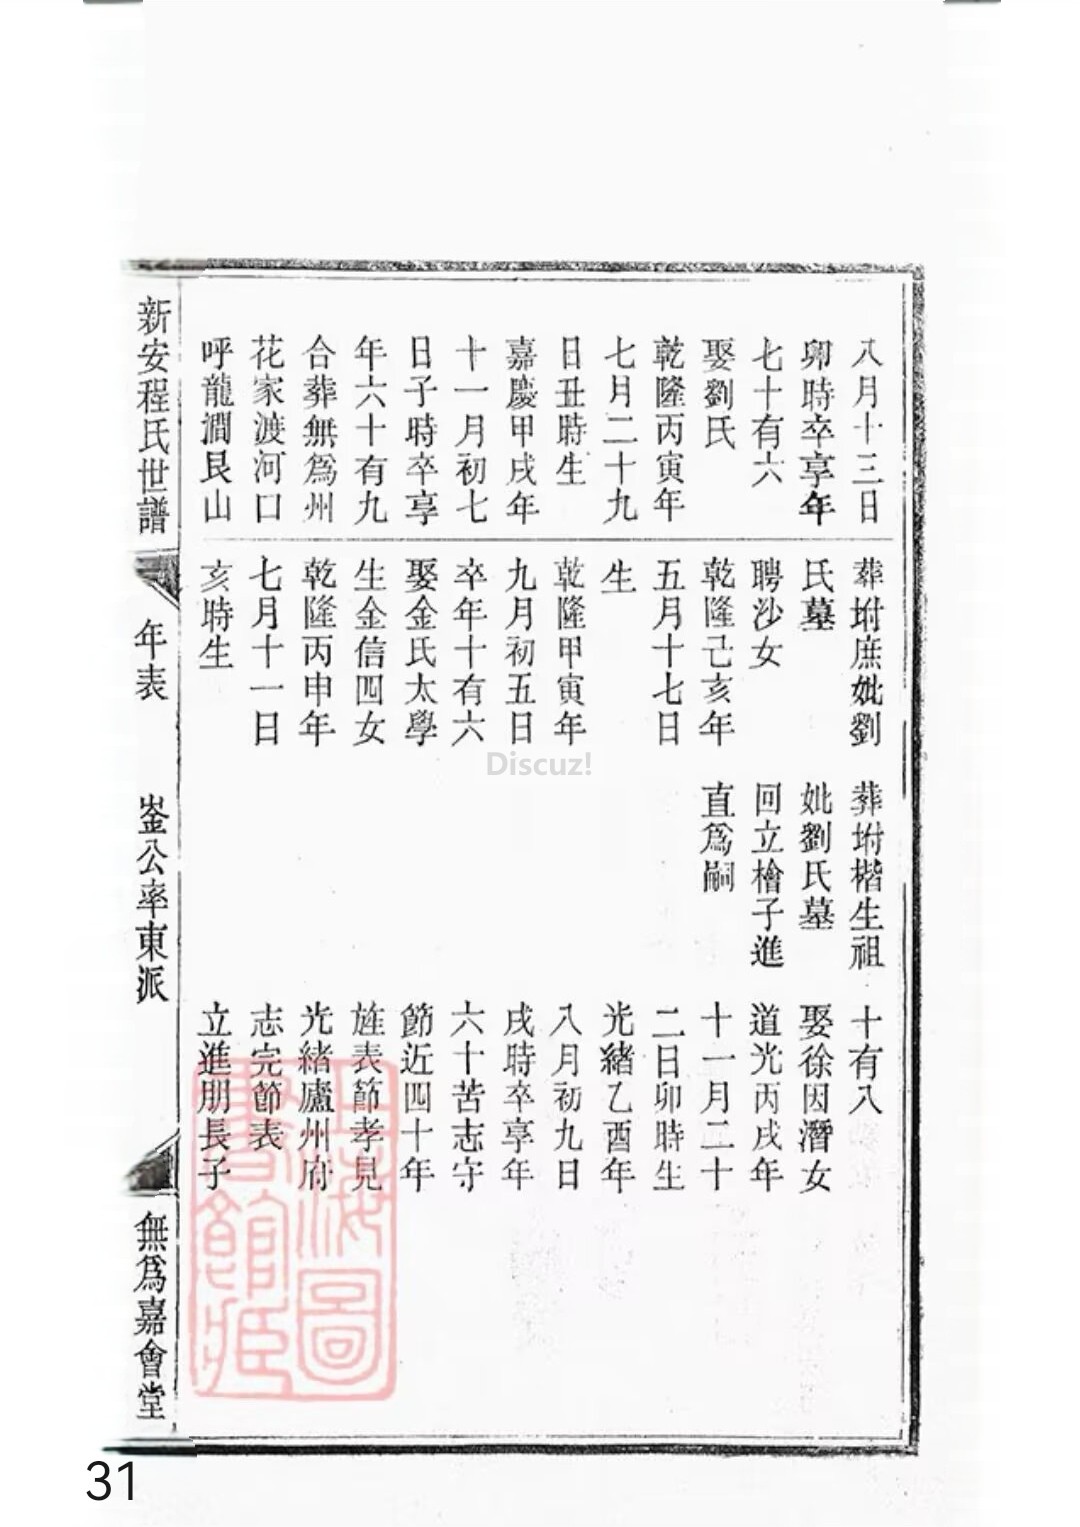 八月十三日
卯時卒享年
七十有六
娶劉氏
乾隆丙寅年
七月二十九
日丑時生
嘉慶甲戌年
十一月初七
日子時卒享
年六十有九
合葬無爲州
花家渡河口
呼龍澗艮山
葬坿庶妣劉
氏墓
聘沙女
乾隆己亥年
五月十七日
生
乾隆甲寅年
九月初五日
卒年十有六
娶金氏太學
生金信四女
乾隆丙申年
七月十一日
亥時生
葬坿楷生祖
妣劉氏墓
回立檜子進
直爲嗣
十有八
娶徐因潛女
道光丙戌年
十一月二十
二日卯時生
光緒乙酉年
八月初九日
戌時卒享年
六十苦志守
節近四十年
旌表節孝見
光緒廬州府
志完節表
立進朋長子
新安程氏世譜
年表
崟公率東派
無爲嘉會堂
上海圖
書館藏
Discuz!
31